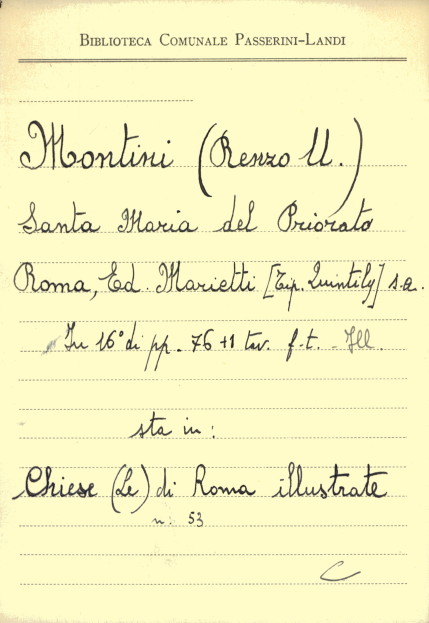 BIBLIOTECA COMUNALE PASSERINI-LANDI
Montini (Renzo U.)
Santa Maria del Priorato
Roma, Ed. Marietti [Tip. Quintily] s.a.
In 16° di pp. 76+1 tav. f.t. - Ill.
sta in:
Chiese (Le) di Roma illustrate
n: 53
C